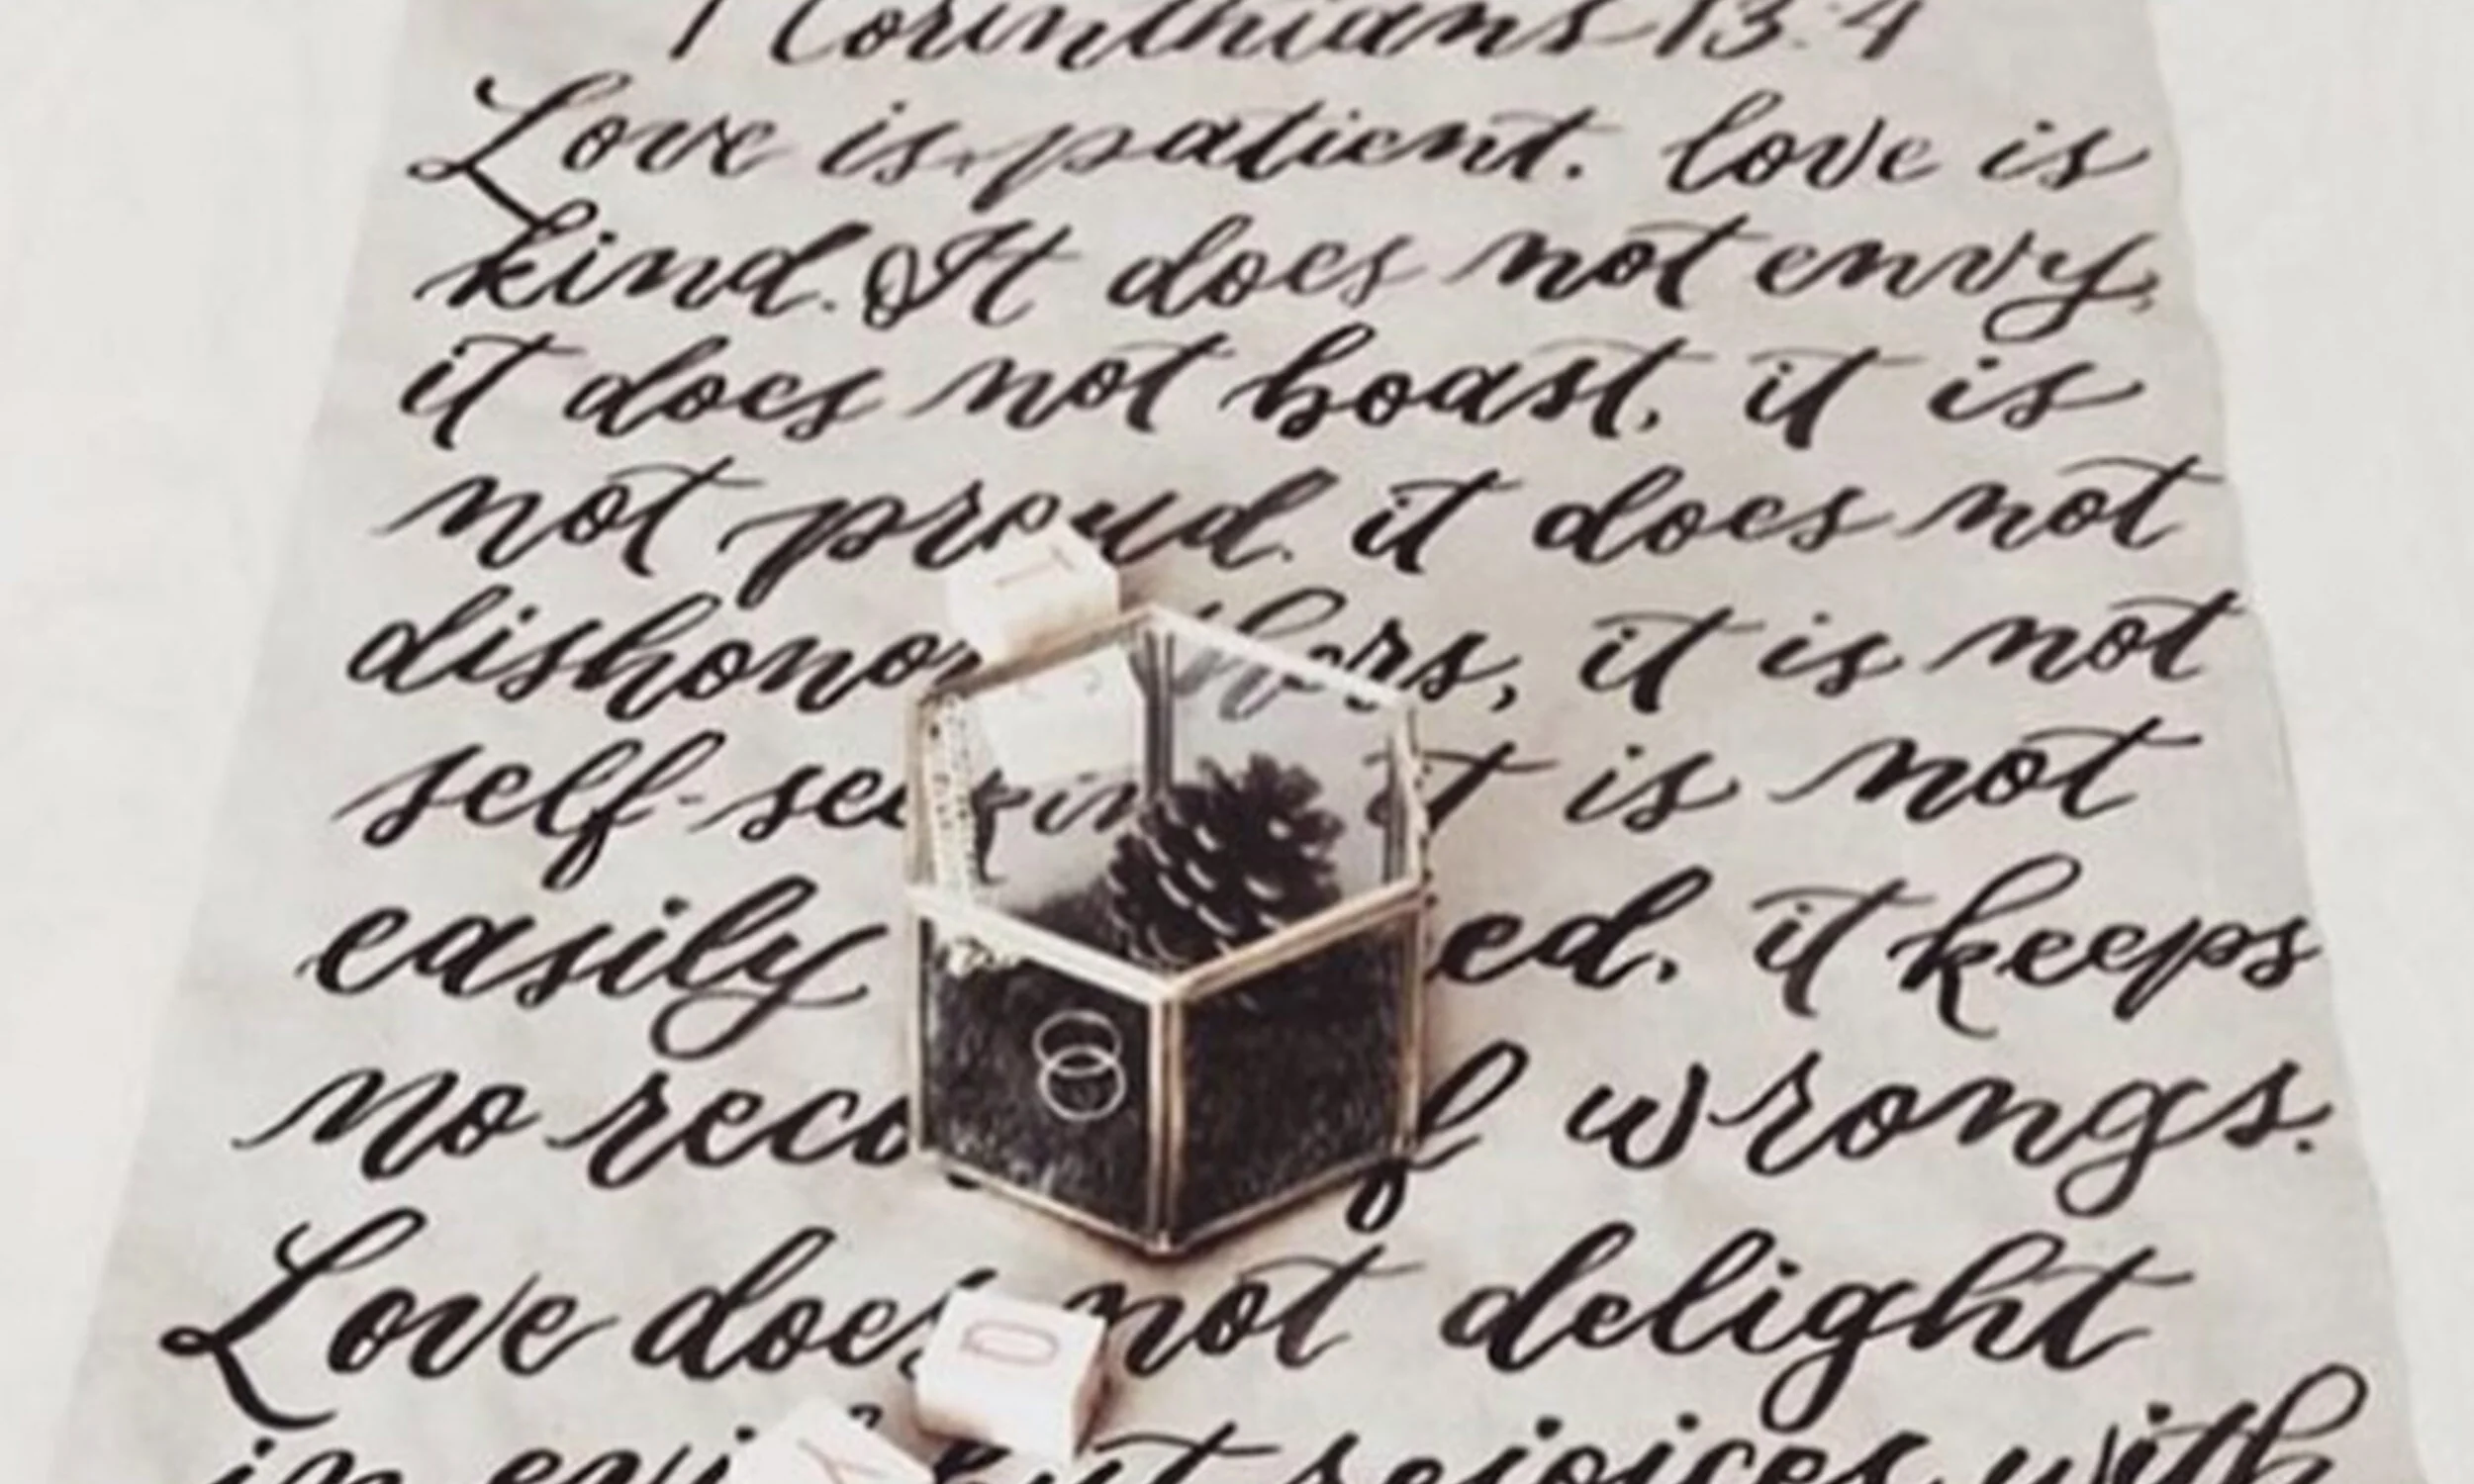 1 Corinthians 13:4
Love is patient. love is
kind. It does not envy,
it does not boast, it is
not proud. it does not
dishonor others, it is not
self-seeking it is not
easily ed, it keeps
no record of wrongs.
Love does not delight
in evil but rejoices with
T
D